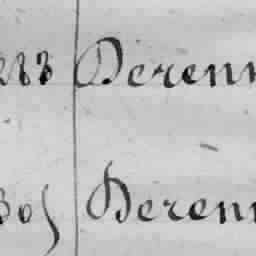 283 Derenn
305 Derenn